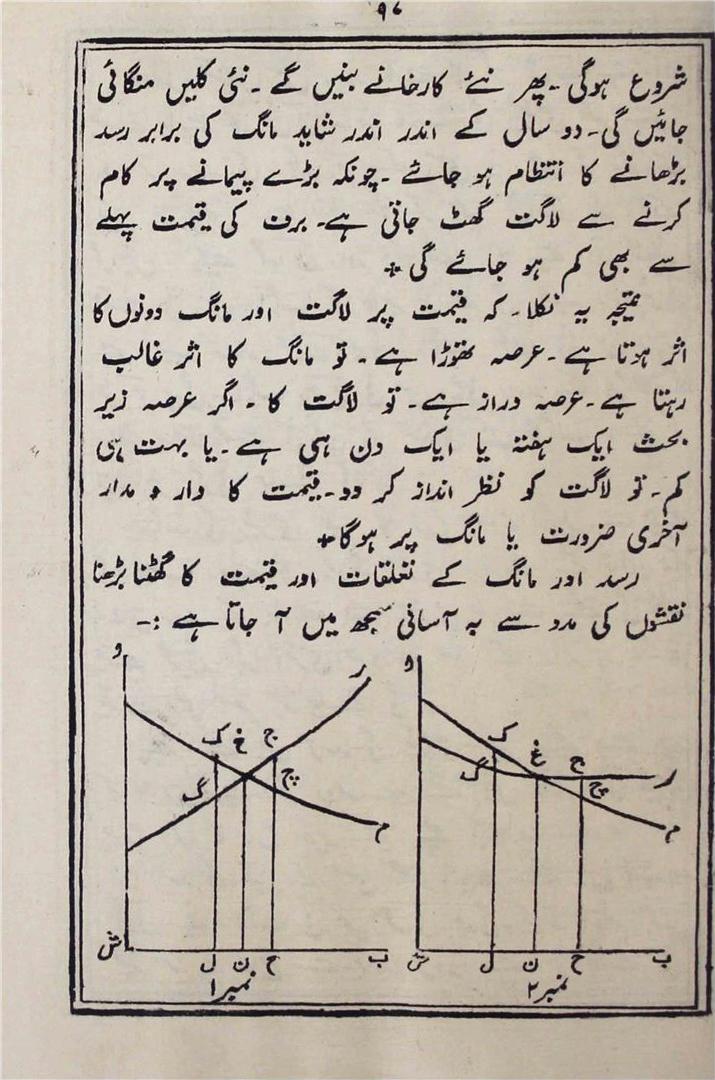 ۹۷
شروع ہوگی۔ پھر نئے کارخانے بنیں گے۔ نئی کلیں منگائی
جائیں گی۔ دو سال کے اندر اندر شاید مانگ کی برابر رسد
بڑھانے کا انتظام ہو جائے۔ چونکہ بڑے پیمانے پر کام
کرنے سے لاگت گھٹ جاتی ہے۔ برف کی قیمت پہلے
سے بھی کم ہو جائے گی +
نتیجہ یہ نکلا۔ کہ قیمت پر لاگت اور مانگ دونوں کا
اثر ہوتا ہے۔ عرصہ تھوڑا ہے۔ تو مانگ کا اثر غالب
رہتا ہے۔ عرصہ دراز ہے۔ تو لاگت کا ۔ اگر عرصہ زیر
بحث ایک ہفتہ یا ایک دن ہی ہے۔ یا بہت ہی
کم۔ تو لاگت کو نظر انداز کر دو۔ قیمت کا دار و مدار
آخری ضرورت یا مانگ پر ہوگا +
رسد اور مانگ کے تعلقات اور قیمت کا گھٹنا بڑھنا
نقشوں کی مدد سے بہ آسانی سمجھ میں آ جاتا ہے :۔
و ر ک غ ج گ چ م ش ل ن ح ب
نمبر ۱
و ک غ ج گ چ ر م ش ل ن ح ب
نمبر ۲